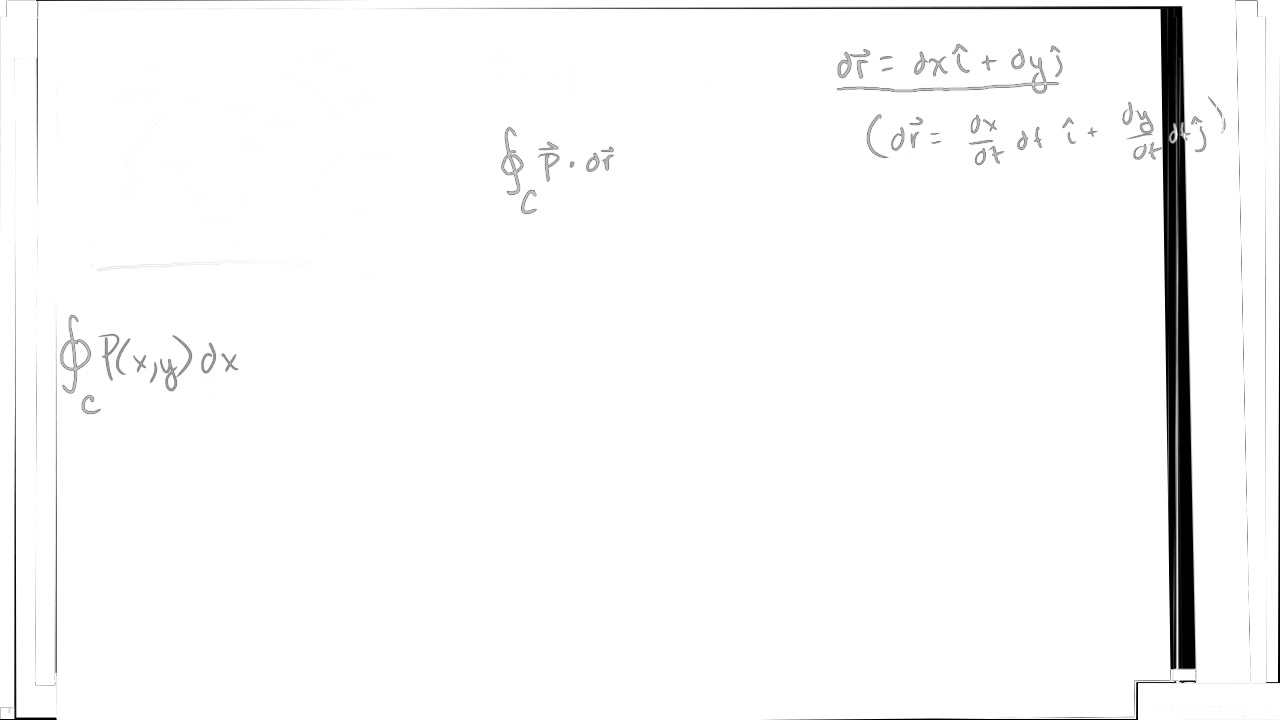 dr⃗ = dx î + dy ĵ
(dr⃗ = dx/dt dt î + dy/dt dt ĵ)
∮_C P⃗ · dr⃗
∮_C P(x,y) dx